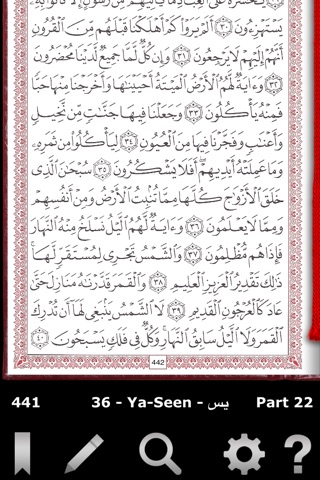 يَٰحَسْرَةً عَلَى ٱلْعِبَادِ مَا يَأْتِيهِم مِّن رَّسُولٍ إِلَّا كَانُوا۟ بِهِۦ
يَسْتَهْزِءُونَ ٣٠ أَلَمْ يَرَوْا۟ كَمْ أَهْلَكْنَا قَبْلَهُم مِّنَ ٱلْقُرُونِ
أَنَّهُمْ إِلَيْهِمْ لَا يَرْجِعُونَ ٣١ وَإِن كُلٌّ لَّمَّا جَمِيعٌ لَّدَيْنَا مُحْضَرُونَ
٣٢ وَءَايَةٌ لَّهُمُ ٱلْأَرْضُ ٱلْمَيْتَةُ أَحْيَيْنَٰهَا وَأَخْرَجْنَا مِنْهَا حَبًّا
فَمِنْهُ يَأْكُلُونَ ٣٣ وَجَعَلْنَا فِيهَا جَنَّٰتٍ مِّن نَّخِيلٍ
وَأَعْنَٰبٍ وَفَجَّرْنَا فِيهَا مِنَ ٱلْعُيُونِ ٣٤ لِيَأْكُلُوا۟ مِن ثَمَرِهِۦ
وَمَا عَمِلَتْهُ أَيْدِيهِمْ ۖ أَفَلَا يَشْكُرُونَ ٣٥ سُبْحَٰنَ ٱلَّذِى
خَلَقَ ٱلْأَزْوَٰجَ كُلَّهَا مِمَّا تُنۢبِتُ ٱلْأَرْضُ وَمِنْ أَنفُسِهِمْ
وَمِمَّا لَا يَعْلَمُونَ ٣٦ وَءَايَةٌ لَّهُمُ ٱلَّيْلُ نَسْلَخُ مِنْهُ ٱلنَّهَارَ
فَإِذَا هُم مُّظْلِمُونَ ٣٧ وَٱلشَّمْسُ تَجْرِى لِمُسْتَقَرٍّ لَّهَا ۚ
ذَٰلِكَ تَقْدِيرُ ٱلْعَزِيزِ ٱلْعَلِيمِ ٣٨ وَٱلْقَمَرَ قَدَّرْنَٰهُ مَنَازِلَ حَتَّىٰ
عَادَ كَٱلْعُرْجُونِ ٱلْقَدِيمِ ٣٩ لَا ٱلشَّمْسُ يَنۢبَغِى لَهَآ أَن تُدْرِكَ
ٱلْقَمَرَ وَلَا ٱلَّيْلُ سَابِقُ ٱلنَّهَارِ ۚ وَكُلٌّ فِى فَلَكٍ يَسْبَحُونَ ٤٠
442
441 36 - Ya-Seen - يس Part 22
?